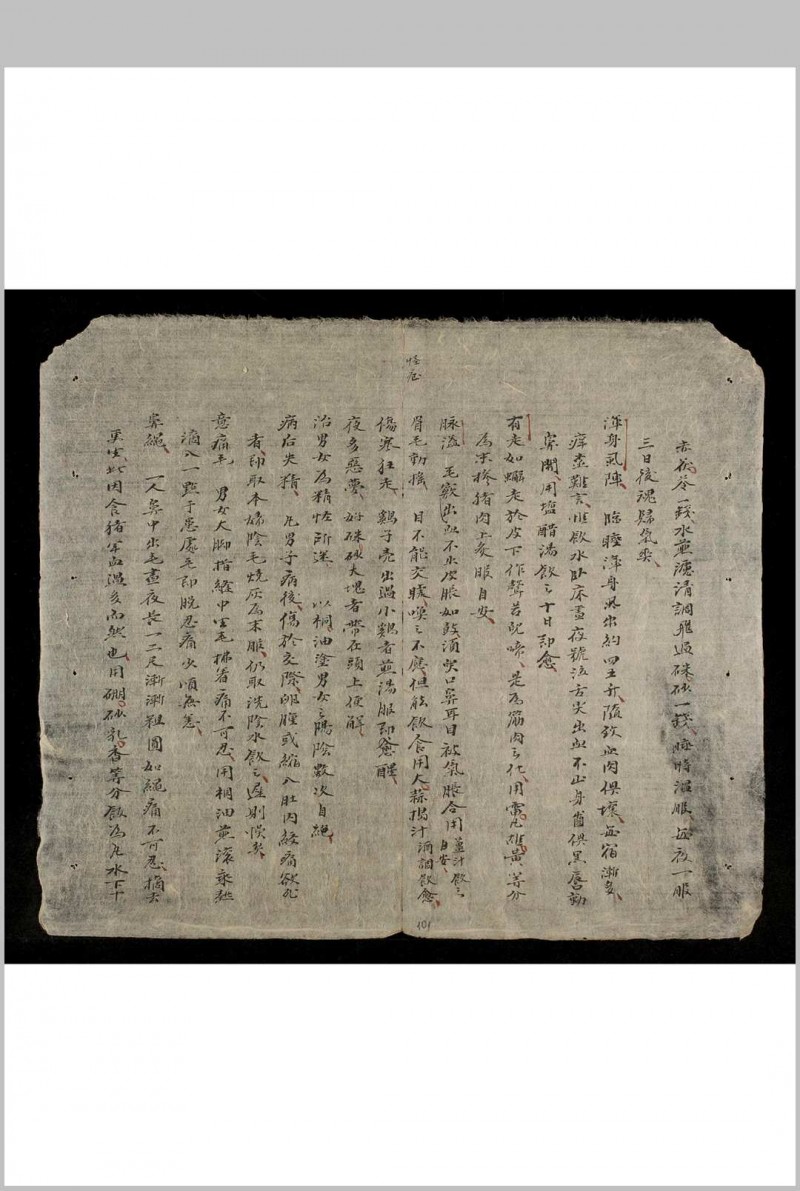 怪症
赤茯苓一錢水煎濃清調飛過硃砂一錢睡時溫服每夜一服
三日後魂歸氣爽
渾身虱陣 臨睡渾身虱出約四五升隨致血肉俱壞每宿漸多
痒虛難言惟飲水臥床晝夜號泣舌尖出血不止身齒俱黑唇動
鼻開用塩醋湯飲之十日即愈
有走如蠏走於皮下作聲若兒啼是為筋肉之化用雷丸雄黃等分
為末摻猪肉上炙服自安
脉溢 毛竅出血不出皮脹如鼓須臾口鼻耳目被氣脹合用薑汁飲之自安
眉毛動搖 目不能交睫喚之不應但能飲食用大蒜搗汁酒調飲愈
傷寒狂走 鷄子売出過小鷄者煎湯服即醒
夜多惡夢 好硃砂大塊者帶在頭上便解
治男女為精怪所迷 以桐油塗男女之陽陰數次自絕
病后失精 凡男子病後傷於交際卵腫或縮入肚內絞痛欲死
者即取本婦陰毛燒灰為末服仍取洗陰水飲之遲則悞矣
意痛毛 男女大脚指縫中生毛拂著痛不可忍用桐油煎滾乘熱
滴入一點于患處毛即脫忍痛少頃無恙
鼻繩 一人鼻中出毛晝夜長一二尺漸漸粗圓如繩痛不可忍摘去
更生此因食猪羊血過多而然也用硼砂乳香等分飯為丸水下十
101